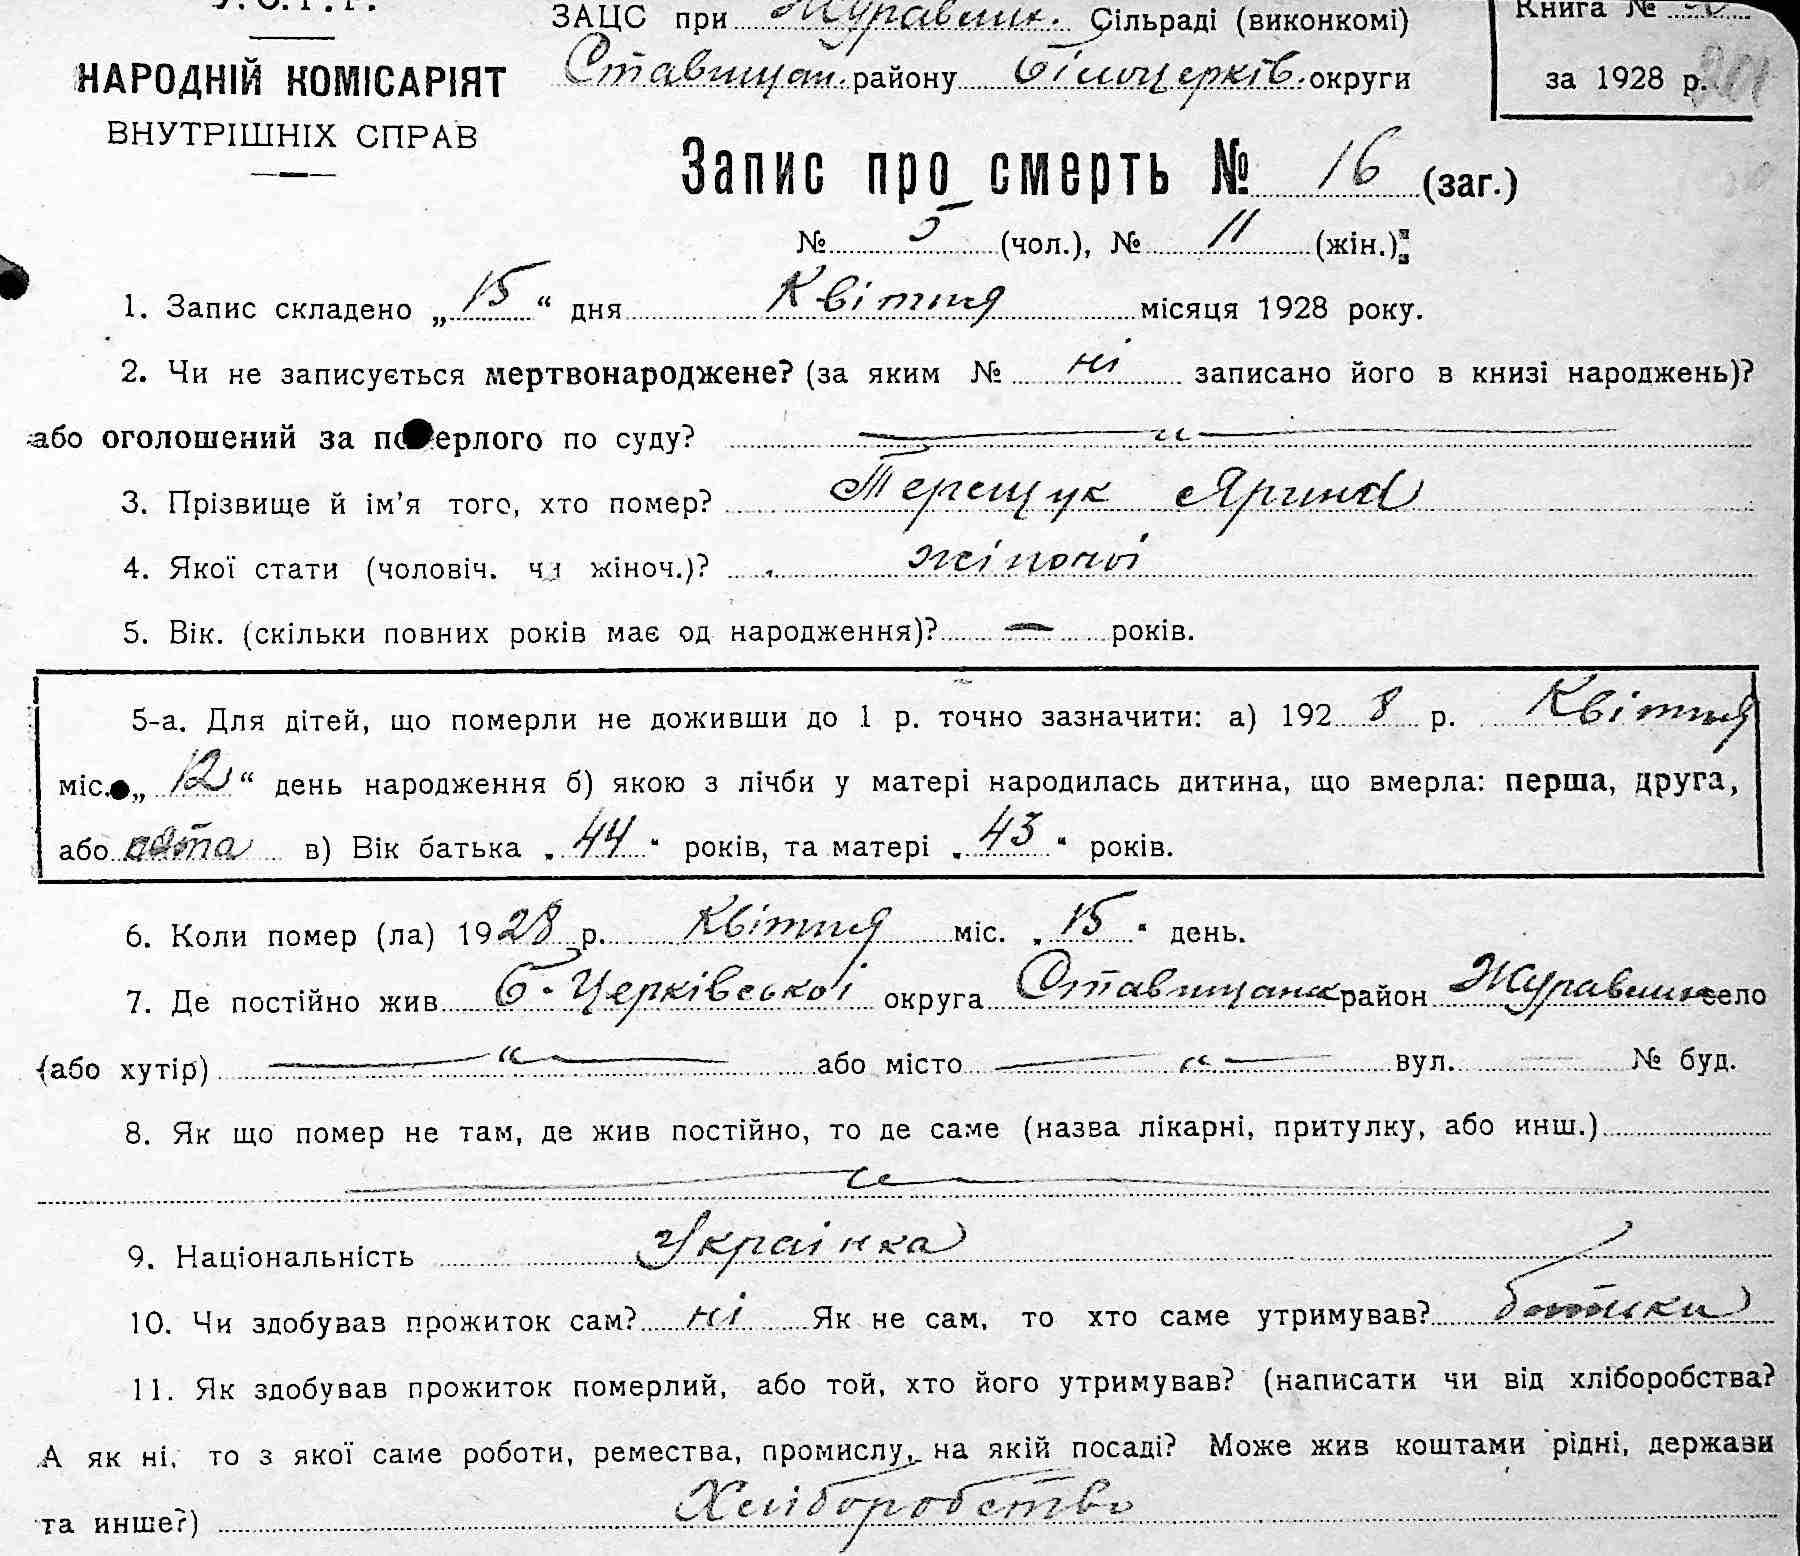 У.С.Р.Р.
НАРОДНІЙ КОМІСАРІЯТ
ВНУТРІШНІХ СПРАВ
ЗАЦС при Журавлин. Сільраді (виконкомі)
Ставищан. району Білоцерків. округи
Книга №
за 1928 р.
201
Запис про смерть № 16 (заг.)
№ 5 (чол.), № 11 (жін.)
1. Запис складено „15“ дня Квітня місяця 1928 року.
2. Чи не записується мертвонароджене? (за яким № ні записано його в книзі народжень)?
або оголошений за померлого по суду? — „ —
3. Прізвище й ім'я того, хто помер? Терещук Ярина
4. Якої стати (чоловіч. чи жіноч.)? жіночої
5. Вік. (скільки повних років має од народження)? — років.
5-а. Для дітей, що померли не доживши до 1 р. точно зазначити: а) 1928 р. Квітня
міс. „12“ день народження б) якою з лічби у матері народилась дитина, що вмерла: перша, друга,
або пята в) Вік батька „44“ років, та матері „43“ років.
6. Коли помер (ла) 1928 р. Квітня міс. „15“ день.
7. Де постійно жив Б-Церківської округа Ставищанск район Журавлин село
(або хутір) — „ — або місто — „ — вул. — № буд.
8. Як що помер не там, де жив постійно, то де саме (назва лікарні, притулку, або инш.)
— „ —
9. Національність Українка
10. Чи здобував прожиток сам? ні Як не сам, то хто саме утримував? батьки
11. Як здобував прожиток померлий, або той, хто його утримував? (написати чи від хліборобства?
А як ні, то з якої саме роботи, ремества, промислу, на якій посаді? Може жив коштами рідні, держави
та инше?) Хліборобство